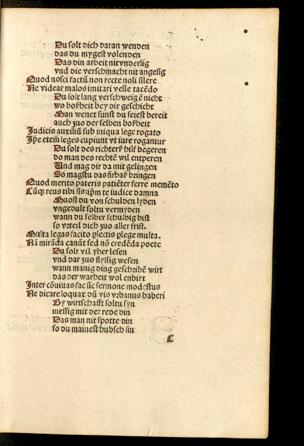 Du solt dich daran wenden
das du mygest volenden
Das din arbeit nit vnderlig
vnd die verschmacht nit angesig
Quod nosci factū non recte noli silere
Ne videar malos imitari velle tacēdo
Du solt lang verschweigē nicht
wo boßheit bey dir geschicht
Man wenet sunst du seiest bereit
auch zuo der selben boßheit
Iudicis auxiliū sub iniqua lege rogato
Ipe etem leges cupiunt vt iure rogantur
Du solt des richters hilf begeren
do man des rechtē wil entperen
Vnd mag dir da mit gelingen
So magstu das fürbas bringen
Quod merito pateris patiēter ferre memēto
Cūq; reus tibi sis ipm te iudice damna
Muost du von schulden lyden
vngedult soltu vermyden
wann du selber schuldig bist
so vrteil dich zuo aller frist.
Multa legas facito plectis plege multa.
Nā mirāda canūt sed nō credēda poete
Du solt vil yber lesen
vnd dar zuo flyssig wesen
wann manig ding geschribē wirt
das der warheit wol enbirt
Inter cōuiuas fac sis sermone modestus
Ne dicare loquax dū vis vrbanus haberi
By wirtschafft soltu syn
messig mit der rede din
Das man nit spotte din
so du mainest hubsch sin